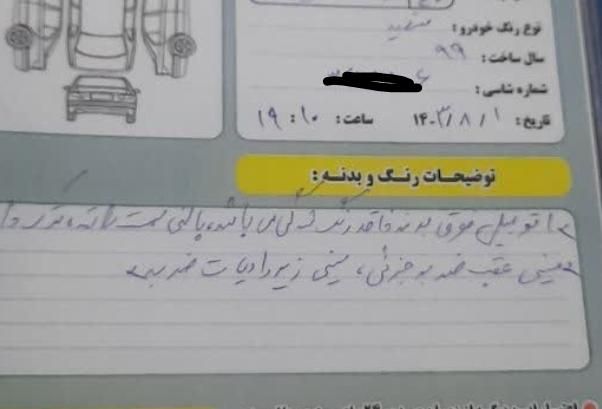 نوع رنگ خودرو: سفید
سال ساخت: ۹۹
شماره شاسی:
تاریخ: ۱۴۰۳/۸/۱ ساعت: ۱۹:۱۰
توضیحات رنگ و بدنه:
اتومبیل فوق بدنه فاقد رنگ شدگی می باشد، پالسی سمت راننده ترک دار
سینی عقب ضربه جزئی، سینی زیر رادیات ضربه